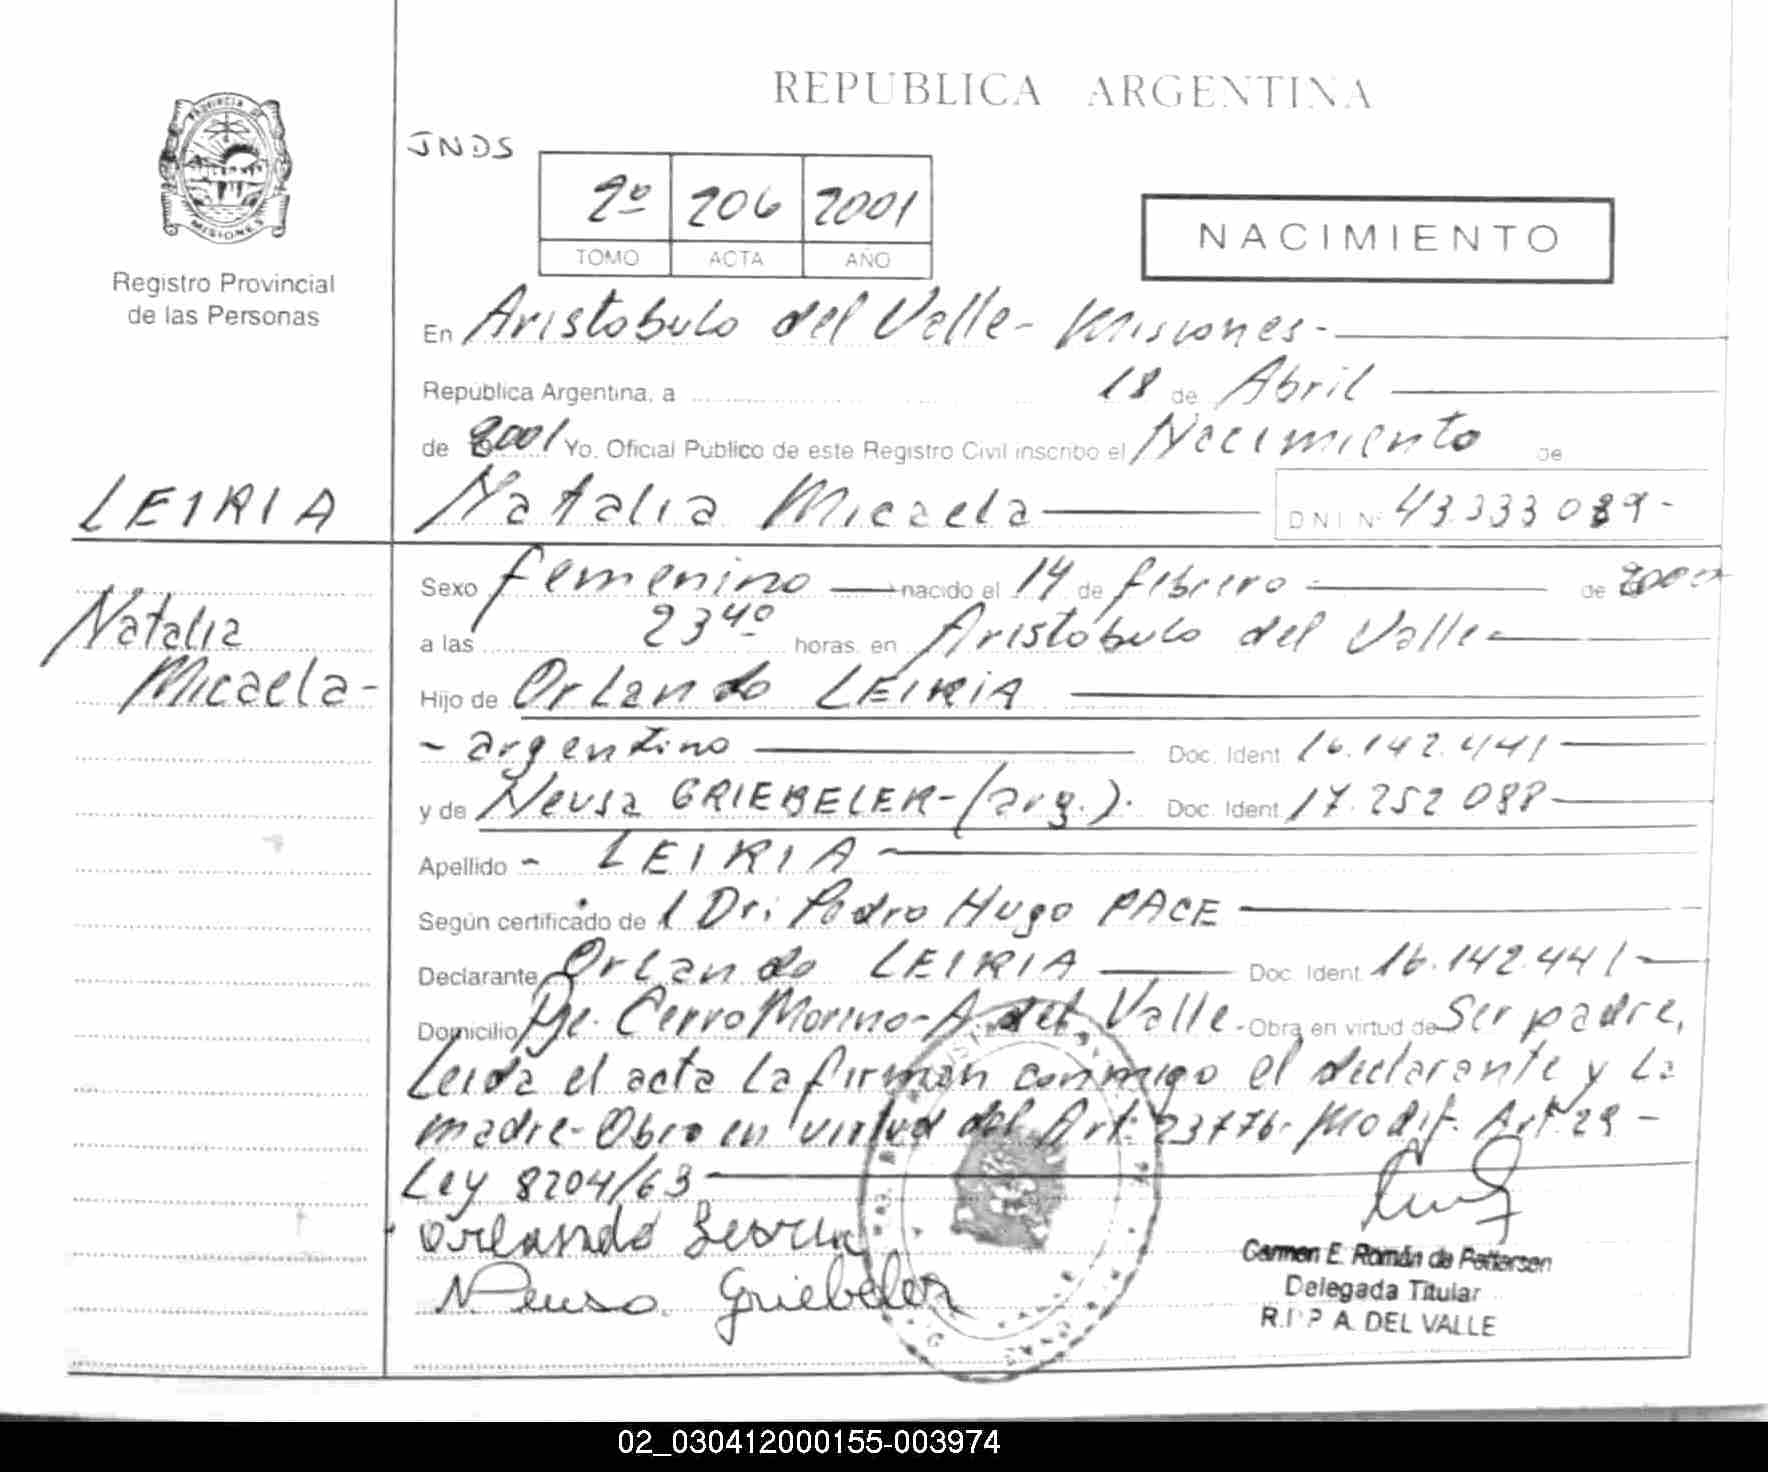 REPUBLICA ARGENTINA
PROVINCIA DE
MISIONES
Registro Provincial
de las Personas
JNDS
2º 206 2001
TOMO ACTA AÑO
NACIMIENTO
En Aristobulo del Valle - Misiones -
República Argentina, a 18 de Abril
de 2001 Yo, Oficial Publico de este Registro Civil inscribo el Nacimiento de
LEIRIA
Natalia Micaela DNI Nº 43.333.089-
Sexo femenino nacido el 14 de febrero de 2000
Natalia
Micaela-
a las 23 40 horas, en Aristobulo del Valle
Hijo de Orlando LEIRIA
- argentino Doc. Ident 16.142.441
y de Neusa GRIEBELER - (arg.). Doc. Ident. 17.252.088
Apellido - LEIRIA
Según certificado de 1 Dr: Pedro Hugo PACE
Declarante Orlando LEIRIA Doc. Ident. 16.142.441
Domicilio Pje. Cerro Moreno - A. del Valle - Obra en virtud de Ser padre,
Leida el acta la firman conmigo el declarante y la
madre - Obro en virtud del Art. 23776. Modif. Art. 29 -
Ley 8204/63
Orlando Leiria
Neusa Griebeler
Carmen E. Román de Pattersen
Delegada Titular
R.P.P A. DEL VALLE
02_030412000155-003974